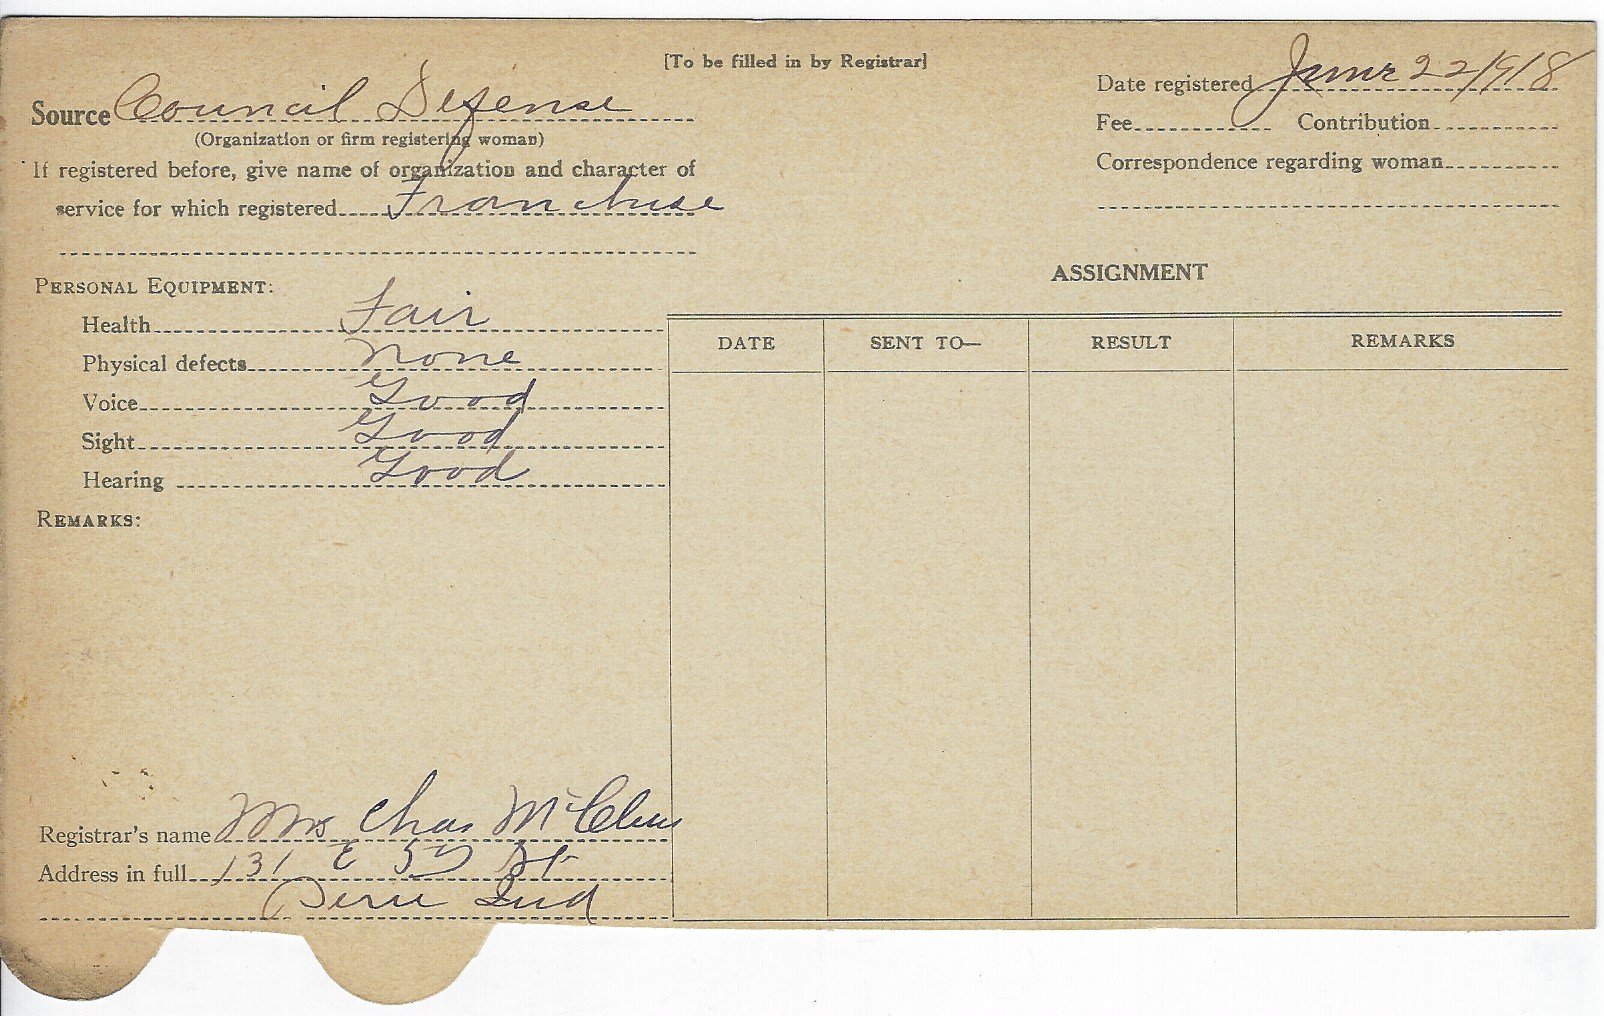 [To be filled in by Registrar]
Source Council Defense
(Organization or firm registering woman)
If registered before, give name of organization and character of
service for which registered Franchise
Date registered June 22/918
Fee Contribution
Correspondence regarding woman
PERSONAL EQUIPMENT:
Health Fair
Physical defects None
Voice Good
Sight Good
Hearing Good
REMARKS:
ASSIGNMENT
DATE SENT TO— RESULT REMARKS
Registrar's name Mrs Chas
Address in full 131 E 5th St
Peru Ind